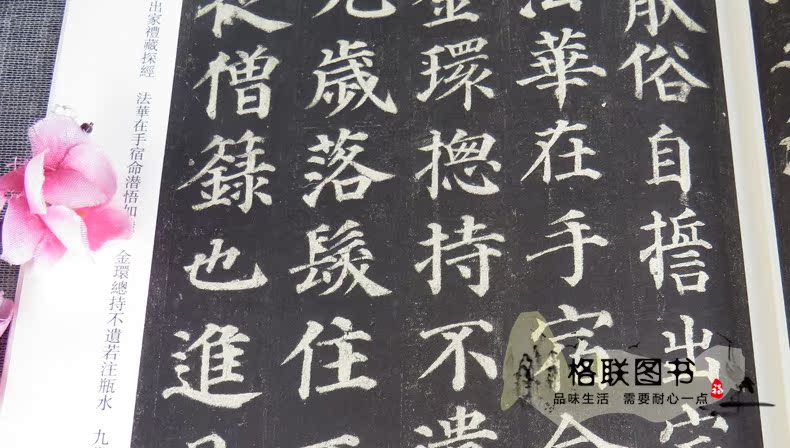 俗自誓出家
法華在手宿命
金環摠持不遺
九歲落髮住
僧籙也進
出家禮藏探經　法華在手宿命潜悟如　金環總持不遺若注瓶水　九
格联图书
福
品味生活　需要耐心一点